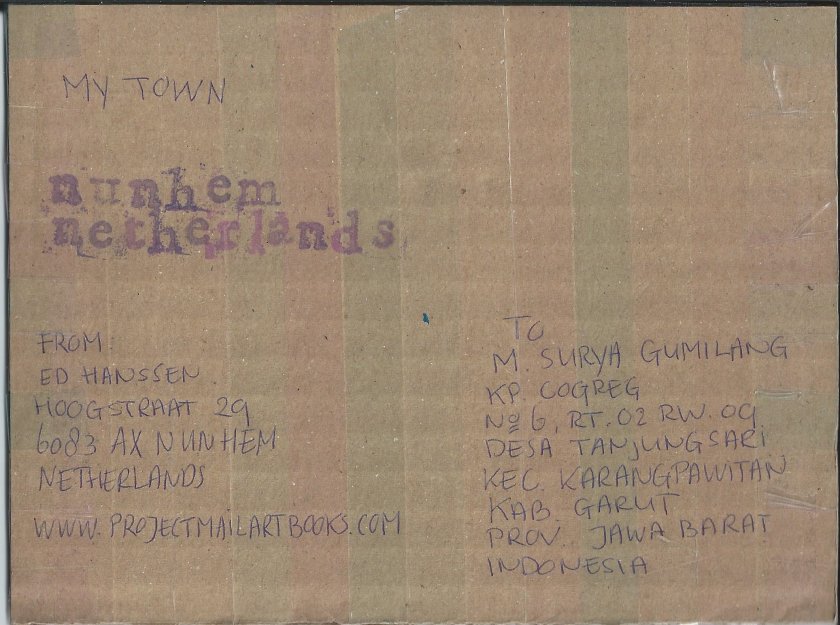 MY TOWN
nunhem
netherlands
FROM:
ED HANSSEN.
HOOGSTRAAT 29
6083 AX NUNHEM
NETHERLANDS
WWW.PROJECTMAILARTBOOKS.COM
TO
M. SURYA GUMILANG
KP. COGREG
Nº 6, RT. 02 RW. 09
DESA TANJUNGSARI
KEC. KARANGPAWITAN
KAB. GARUT
PROV. JAWA BARAT
INDONESIA